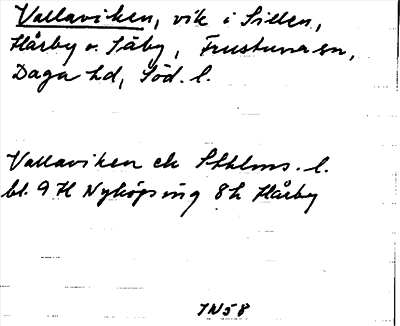 Vallaviken, vik i Sillen,
Hårby o. Säby, Frustuna sn,
Daga hd, Söd. l.
Vallaviken ek Sthlms. l.
bl. 9 H Nyköping 8h Hårby
IN58